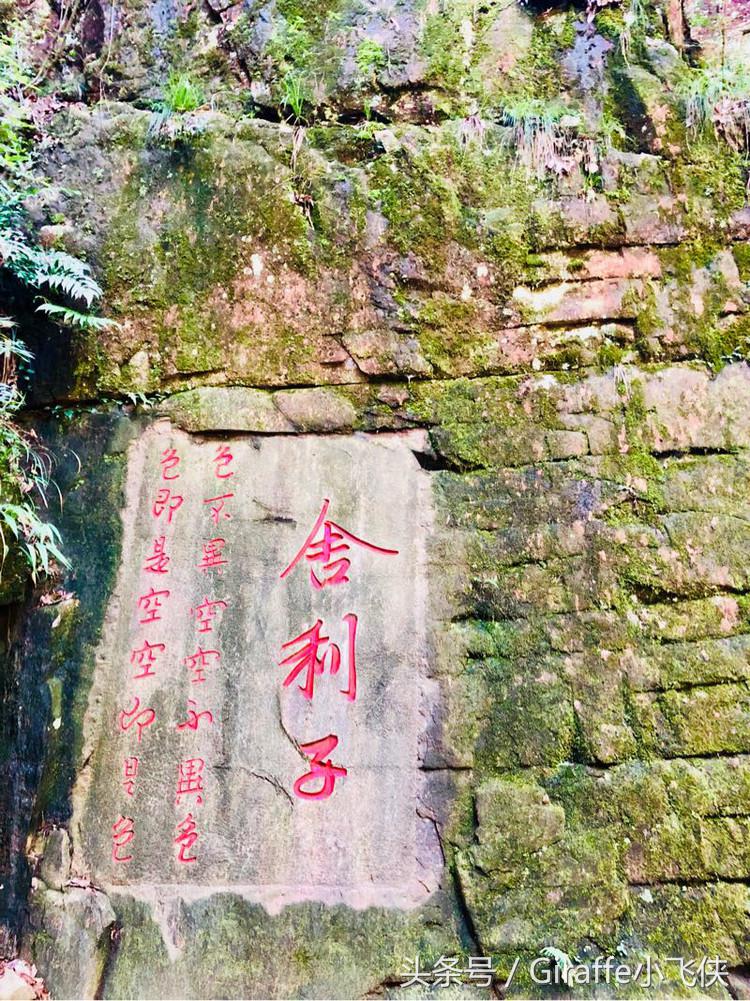 舍利子
色不異空空不異色
色即是空空即是色
头条号 / Giraffe小飞侠